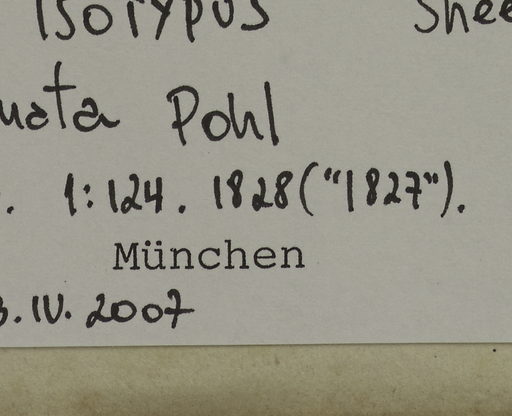 Isotypus Shee
uata Pohl
. 1:124. 1828 ("1827").
München
3.IV.2007